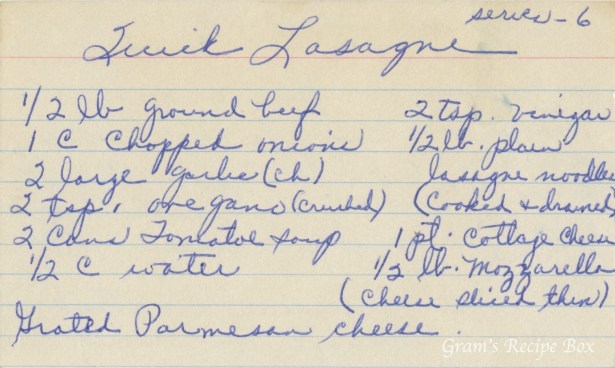 serves - 6
Quick Lasagne
1/2 lb ground beef
1 C chopped onions
2 large garlic (ch)
2 tsp. oregano (crushed)
2 cans Tomatoe soup
1/2 C water
2 tsp. vinegar
1/2 lb. plain
lasagne noodles
(cooked & drained)
1 pt. cottage cheese
1/2 lb. Mozzarella
(cheese sliced thin)
Grated Parmesan cheese.
Gram's Recipe Box